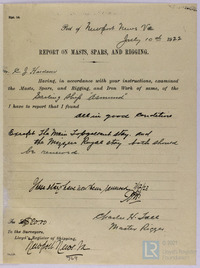 Port of Newport News Va
July 10th 1922
REPORT ON MASTS, SPARS, AND RIGGING.
Having, in accordance with your instructions, examined
the Masts, Spars, and Rigging, and Iron Work of same, of the
Ship
I have to report that I found
all in good condition
Except The Main Topgallant stay and
the Mizzen Royal stay both should
be renewed
These stays have now been renewed
Charles H.
Master Rigger
Fee $20.00
To the Surveyors,
Lloyd's Register of Shipping,
Newport News Va.